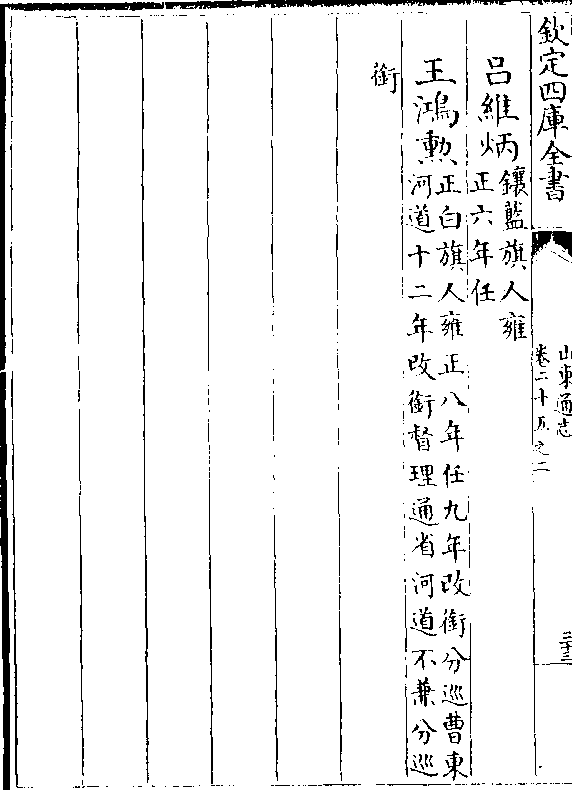 欽定四庫全書
山東通志
卷二十五之二
三十三
呂維炳鑲藍旗人雍
正六年任
王鴻勲正白旗人雍正八年任九年改銜分巡曹東
河道十二年改銜督理通省河道不兼分巡
銜